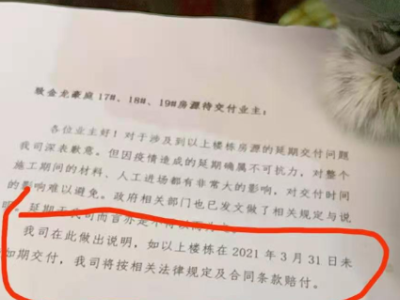 致金龙豪庭17#、18#、19#房源待交付业主：
各位业主好！对于涉及到以上楼栋房源的延期交付问题
我司深表歉意。但因疫情造成的延期确属不可抗力，对整个
施工期间的材料、人工进场都有非常大的影响，对交付时间
的影响难以避免。政府相关部门也已发文做了相关规定与说
明。延期于我司而言亦是不
我司在此做出说明，如以上楼栋在 2021 年 3 月 31 日未
如期交付，我司将按相关法律规定及合同条款赔付。